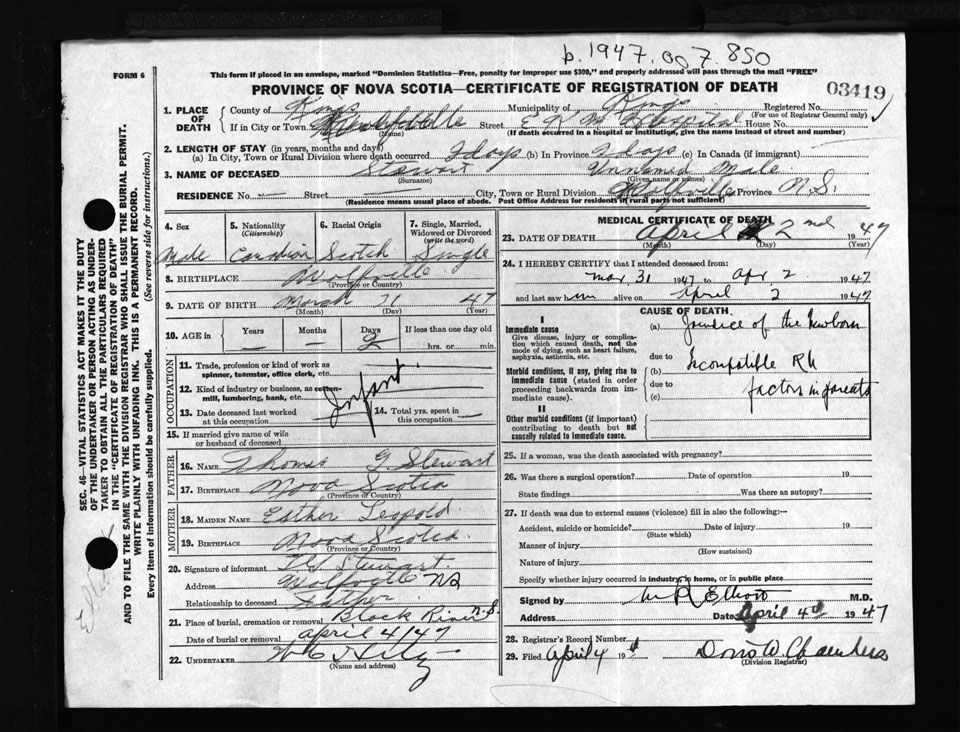 b. 1947. 007.850
FORM 6
This form if placed in an envelope, marked "Dominion Statistics—Free, penalty for improper use $300," and properly addressed will pass through the mail "FREE"
PROVINCE OF NOVA SCOTIA—CERTIFICATE OF REGISTRATION OF DEATH
03419
1. PLACE OF DEATH
County of Kings Municipality of Kings Registered No.
(For use of Registrar General only)
If in City or Town Wolfville Street E K M Hospital House No.
(Name) (If death occurred in a hospital or institution, give the name instead of street and number)
2. LENGTH OF STAY (in years, months and days)
(a) In City, Town or Rural Division where death occurred 2 days (b) In Province 2 days (c) In Canada (if immigrant)
3. NAME OF DECEASED Stewart Unnamed Male
(Surname) (Given name or names)
RESIDENCE No. — Street City, Town or Rural Division Wolfville Province N.S.
(Residence means usual place of abode. Post Office Address for residents in rural parts not sufficient)
4. Sex
Male
5. Nationality
(Citizenship)
Canadian
6. Racial Origin
Scotch
7. Single, Married, Widowed or Divorced
(write the word)
Single
8. BIRTHPLACE Wolfville
(Province or Country)
9. DATE OF BIRTH March 31 47
(Month) (Day) (Year)
10. AGE in
Years Months Days If less than one day old
— — 2 hrs. or min.
OCCUPATION
11. Trade, profession or kind of work as spinner, teamster, office clerk, etc.
12. Kind of industry or business, as cotton-mill, lumbering, bank, etc.
Infant
13. Date deceased last worked at this occupation
14. Total yrs. spent in this occupation —
15. If married give name of wife or husband of deceased
FATHER
16. NAME Thomas G Stewart
17. BIRTHPLACE Nova Scotia
(Province or Country)
MOTHER
18. MAIDEN NAME Esther Leopold
19. BIRTHPLACE Nova Scotia
(Province or Country)
20. Signature of informant Stewart
Address Wolfville NS
Relationship to deceased Father
21. Place of burial, cremation or removal Black River N.S.
Date of burial or removal April 4/47
22. UNDERTAKER
(Name and address)
MEDICAL CERTIFICATE OF DEATH
23. DATE OF DEATH April 2nd 1947
(Month) (Day) (Year)
24. I HEREBY CERTIFY that I attended deceased from:
Mar 31 1947 to Apr 2 1947
and last saw him alive on April 2 1947
CAUSE OF DEATH
I
Immediate cause
Give disease, injury or complication which caused death, not the mode of dying, such as heart failure, asphyxia, asthenia, etc.
(a) Jaundice of the Newborn
due to
Morbid conditions, if any, giving rise to immediate cause (stated in order proceeding backwards from immediate cause).
(b) Incompatible RH
due to
(c) factors in parents
II
Other morbid conditions (if important) contributing to death but not causally related to immediate cause.
25. If a woman, was the death associated with pregnancy?
26. Was there a surgical operation? Date of operation 19
State findings Was there an autopsy?
27. If death was due to external causes (violence) fill in also the following:—
Accident, suicide or homicide? Date of injury 19
(State which)
Manner of injury
(How sustained)
Nature of injury
Specify whether injury occurred in industry, in home, or in public place
Signed by Elliott M.D.
Address Date April 4th 1947
28. Registrar's Record Number
29. Filed April 4 19 Chambers
(Division Registrar)
SEC. 46—VITAL STATISTICS ACT MAKES IT THE DUTY
OF THE UNDERTAKER OR PERSON ACTING AS UNDER-
TAKER TO OBTAIN ALL THE PARTICULARS REQUIRED
IN THE "CERTIFICATE OF REGISTRATION OF DEATH"
AND TO FILE THE SAME WITH THE DIVISION REGISTRAR WHO SHALL ISSUE THE BURIAL PERMIT.
WRITE PLAINLY WITH UNFADING INK. THIS IS A PERMANENT RECORD.
Every item of information should be carefully supplied. (See reverse side for instructions.)